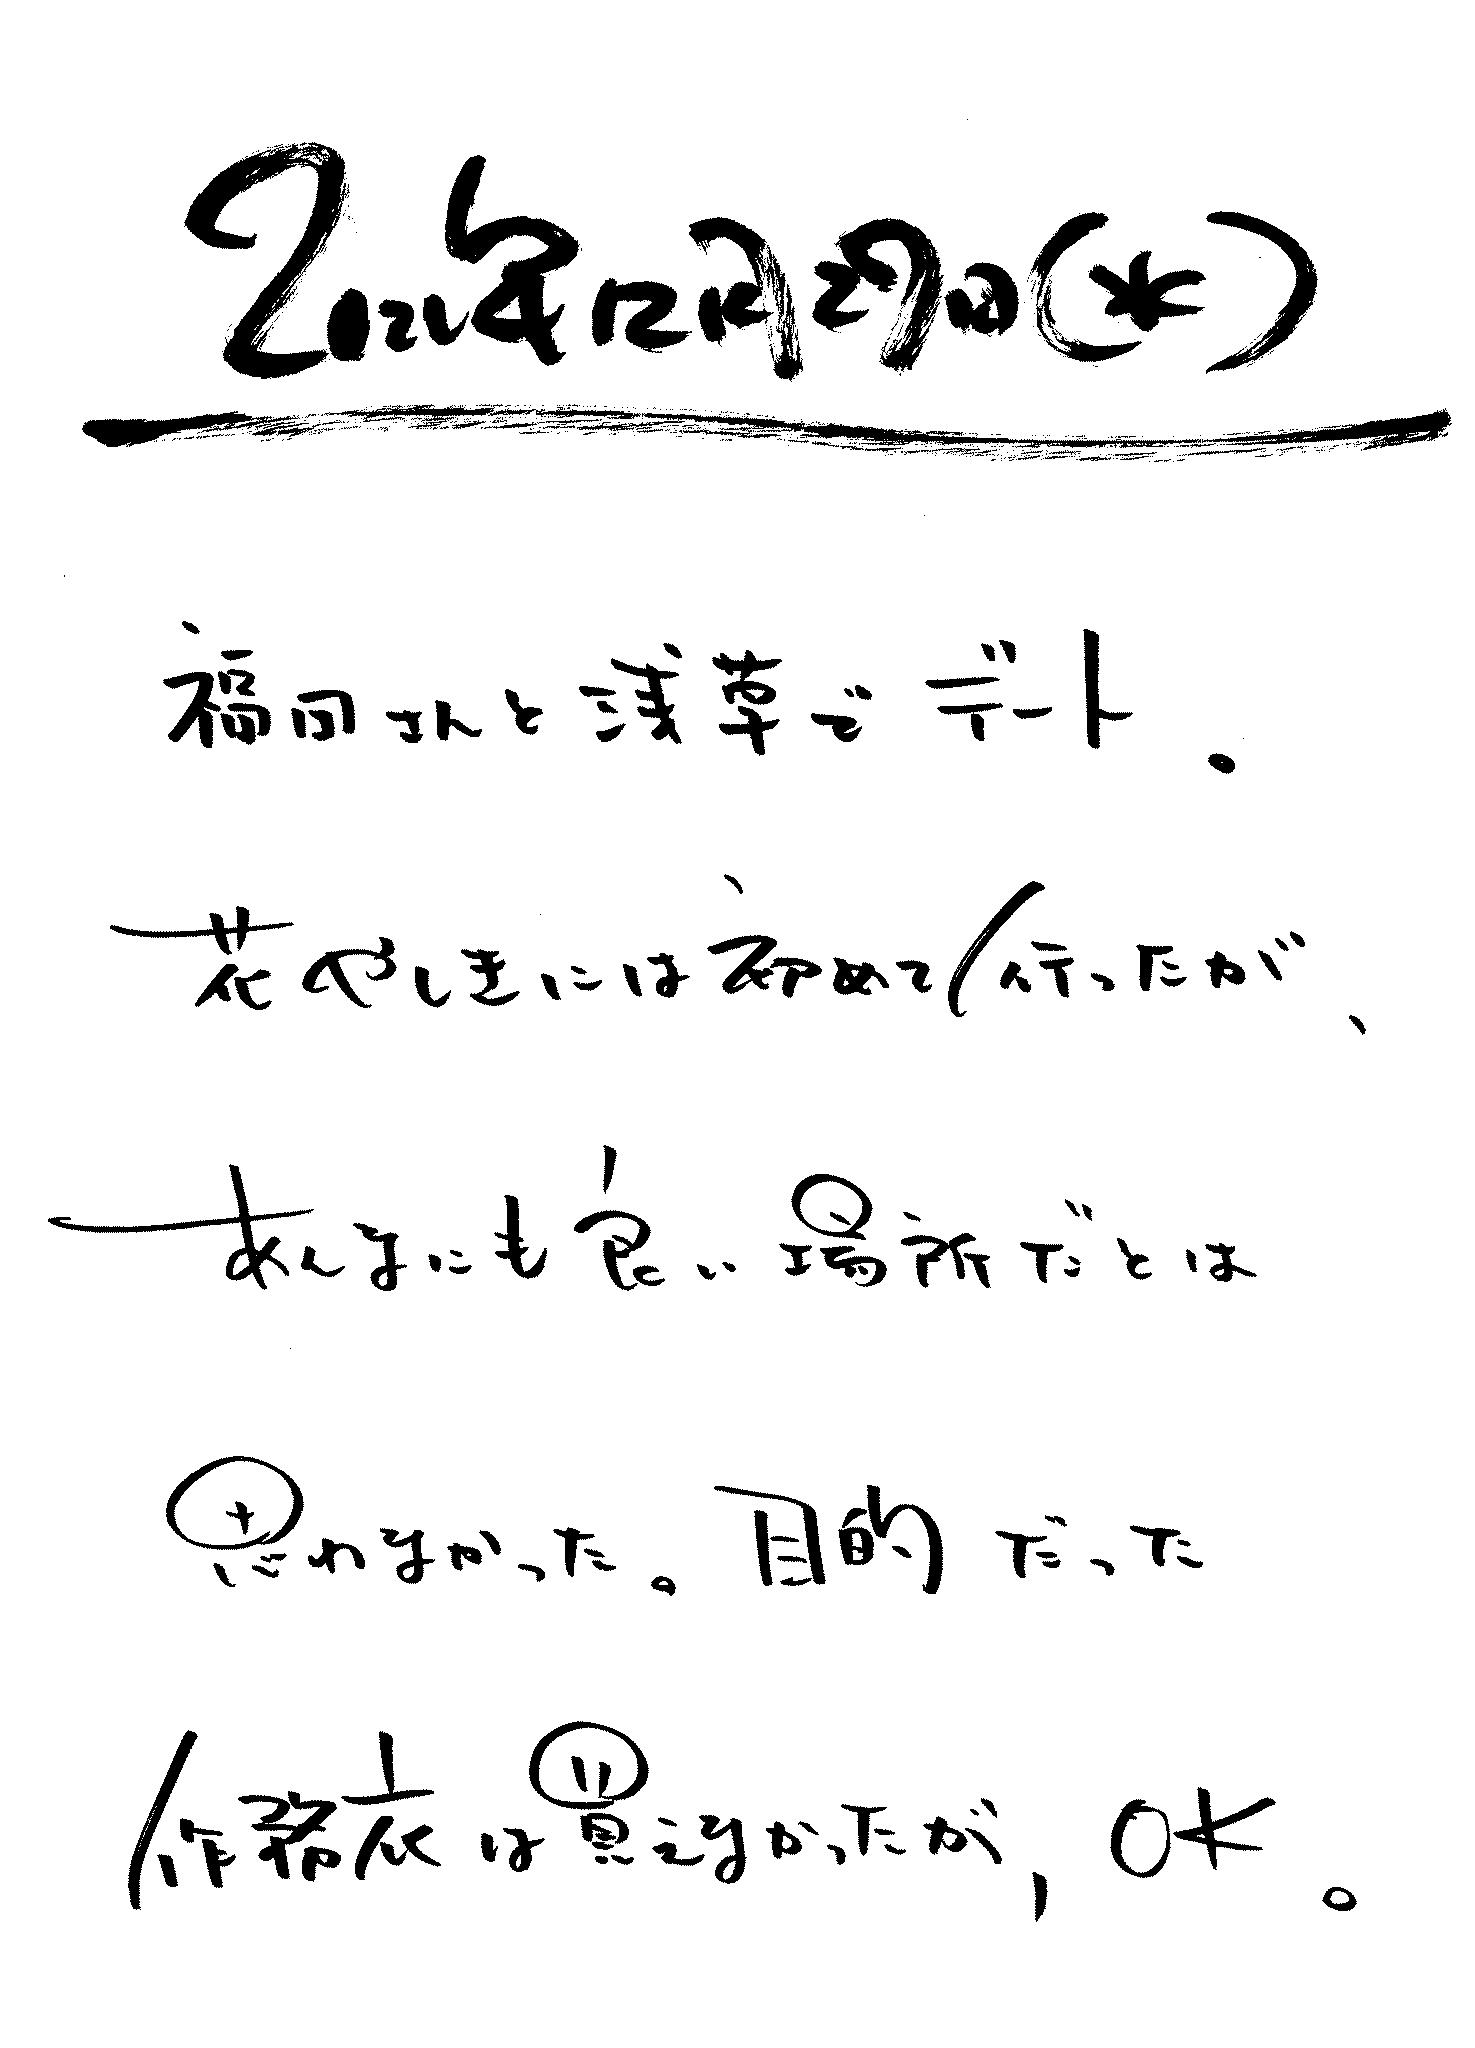 2021年12月29日(水)
福田さんと浅草でデート。
花やしきには初めて行ったが、
あんなにも良い場所だとは
思わなかった。目的だった
作務衣は買えなかったが、OK。